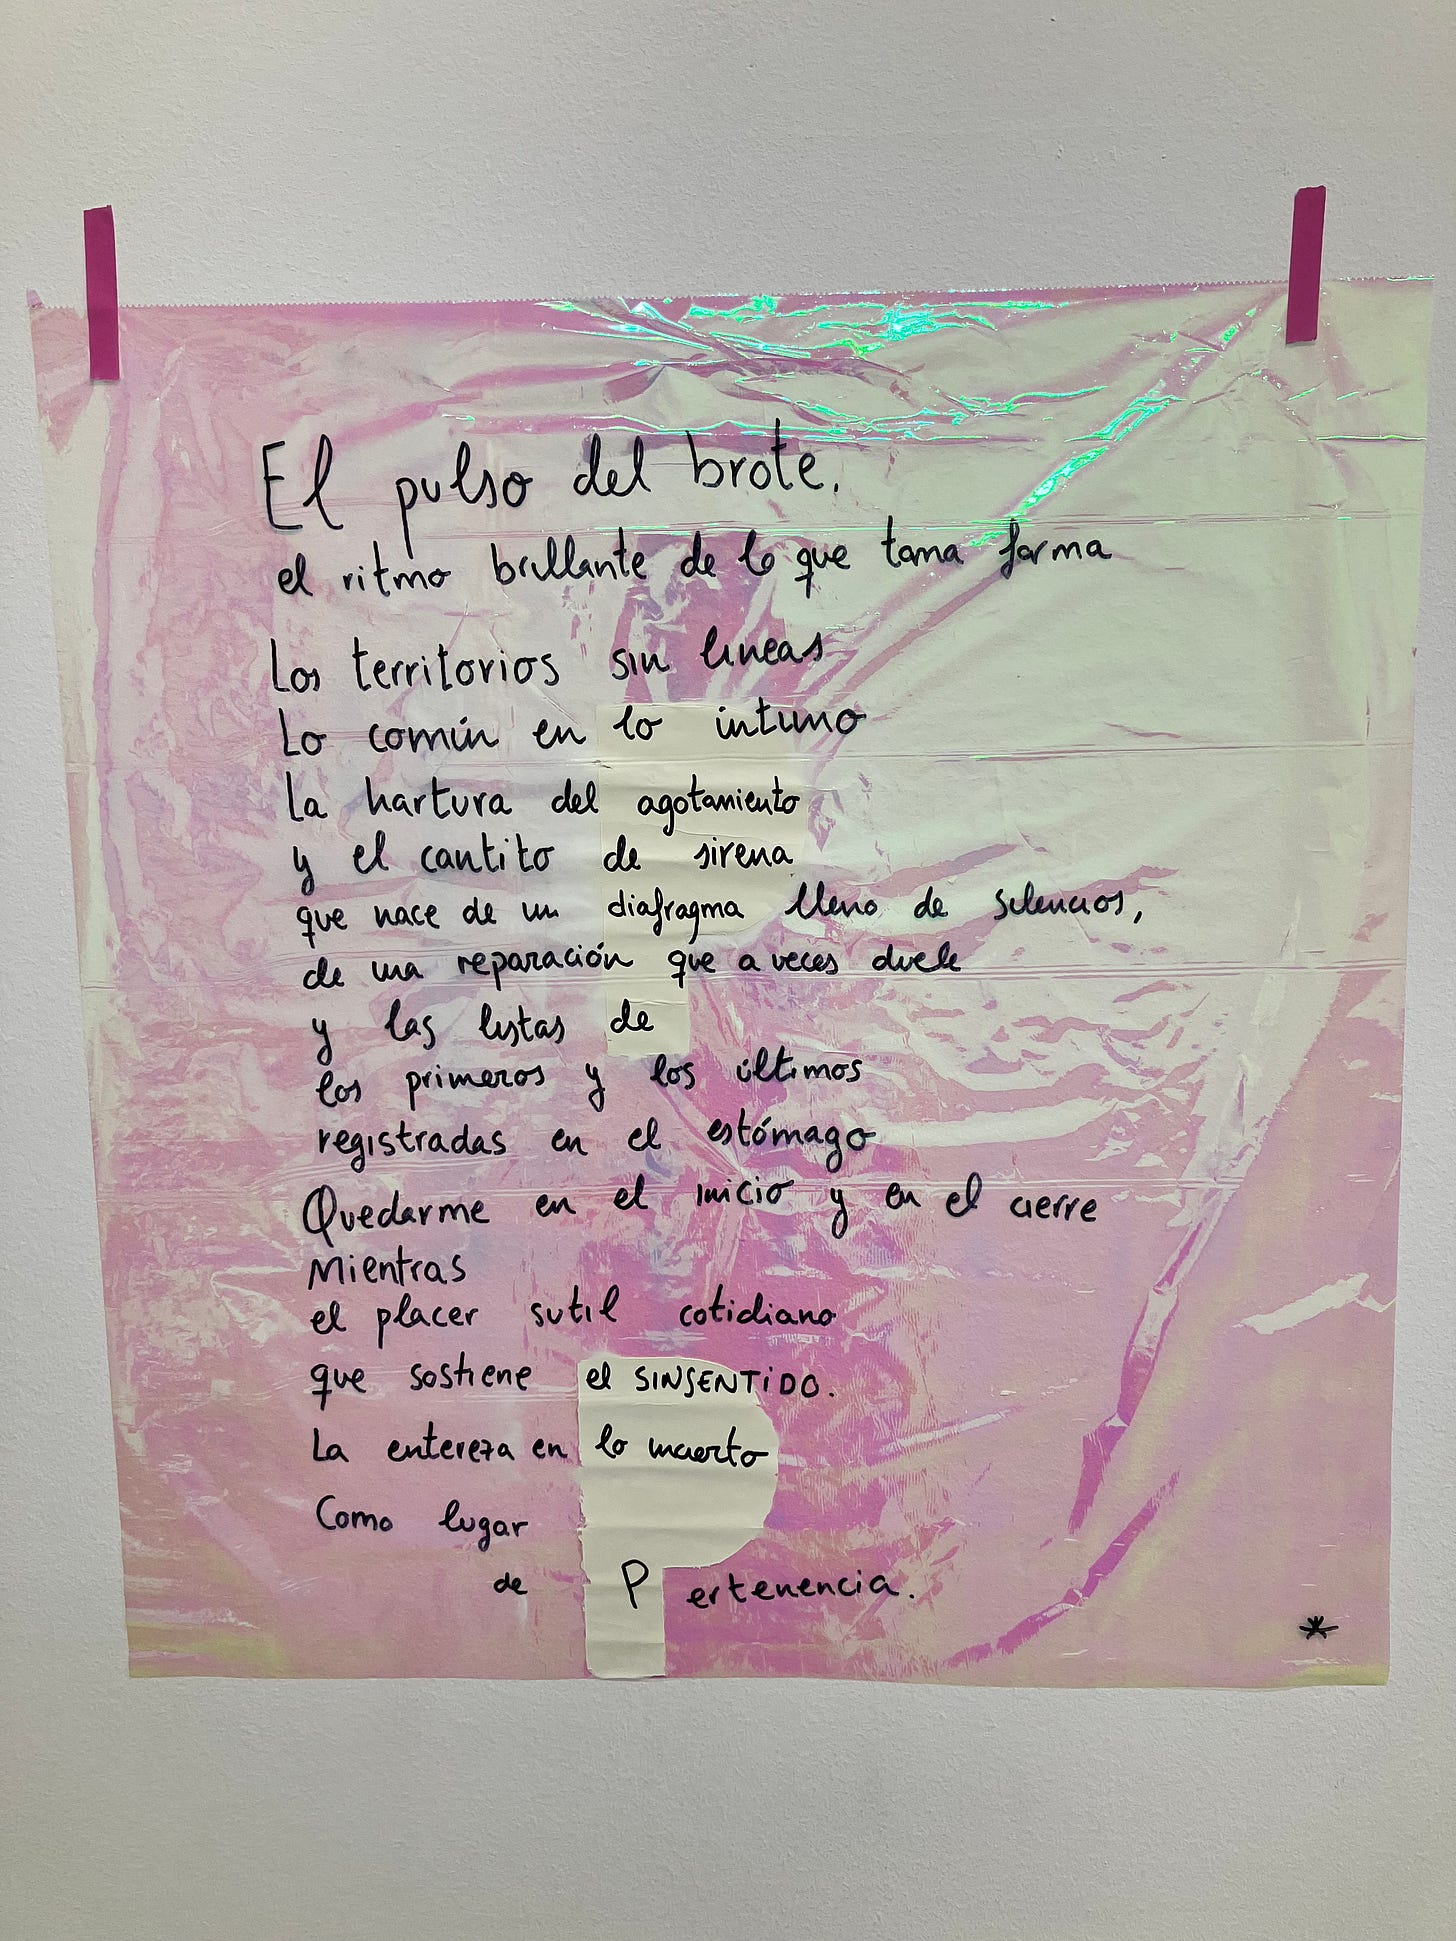 El pulso del brote,
el ritmo brillante de lo que toma forma
Los territorios sin lineas
Lo común en lo íntimo
La hartura del agotamiento
y el cantito de sirena
que nace de un diafragma lleno de silencios,
de una reparación que a veces duele
y las listas de
los primeros y los últimos
registradas en el estómago
Quedarme en el inicio y en el cierre
Mientras
el placer sutil cotidiano
que sostiene el SINSENTIDO.
La entereza en lo muerto
Como lugar
de Pertenencia.
*